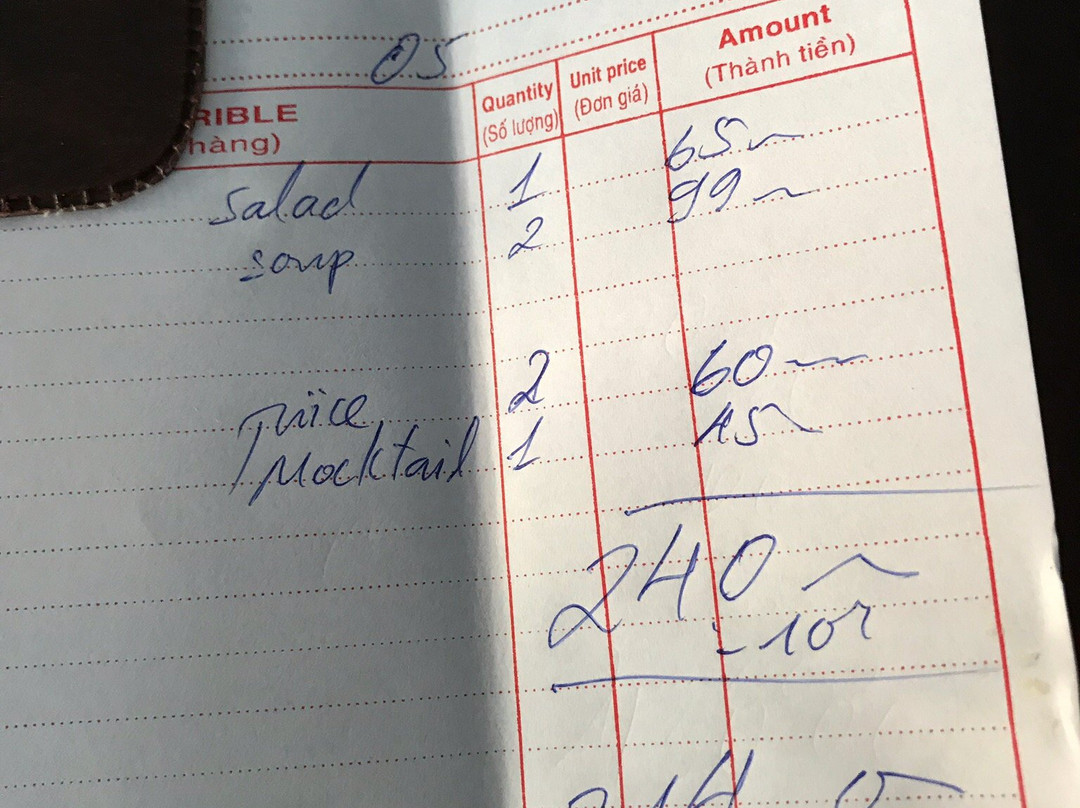 05
RIBLE Quantity Unit price Amount
hàng) (Số lượng) (Đơn giá) (Thành tiền)
Salad 1 65
soup 2 99
Juice 2 60
Mocktail 1 45
240